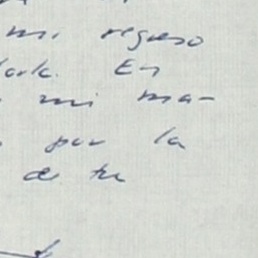 mi regreso
York. En
mi ma-
por la
de tu